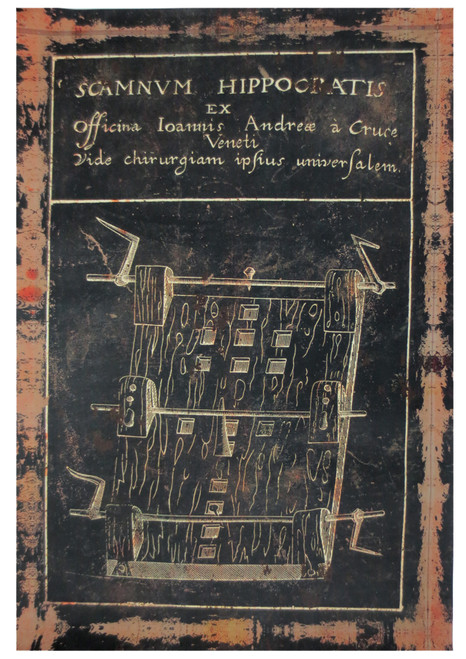 SCAMNVM HIPPOCRATIS
EX
Officina Ioannis Andreæ à Cruce
Veneti
Vide chirurgiam ipſius univerſalem.